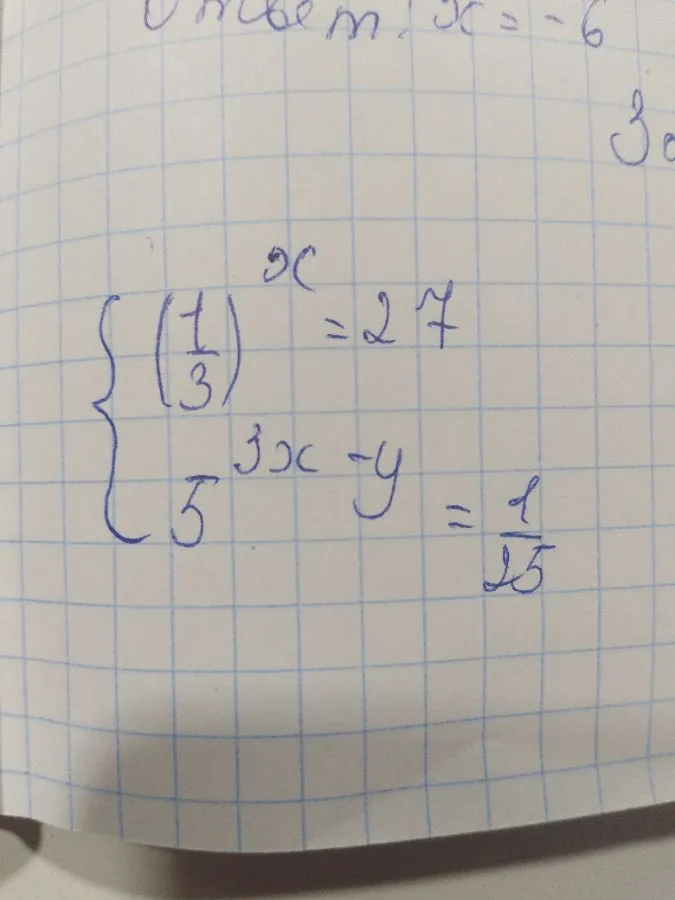 Ответ: x = -6
3
{ (1/3)^x = 27
5^(3x-y) = 1/25